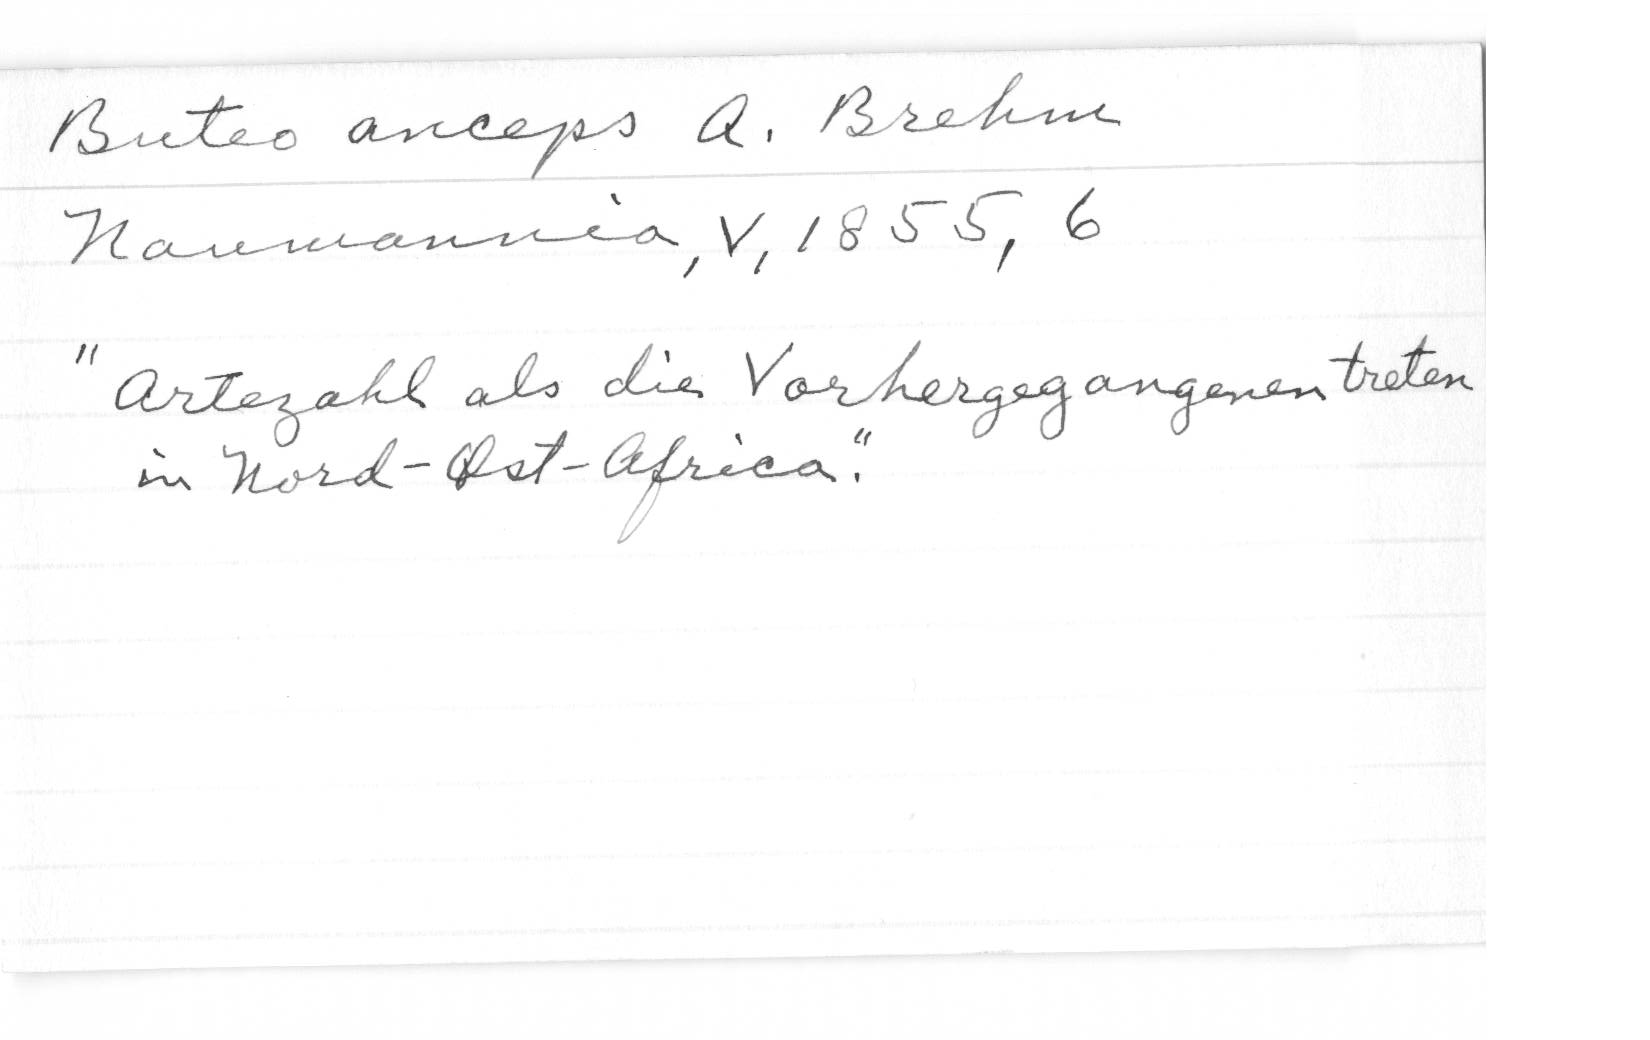 Buteo anceps A. Brehm
Naumannia, V, 1855, 6
"Artezahl als die Vorhergegangenen treten
in Nord-Ost-Africa."